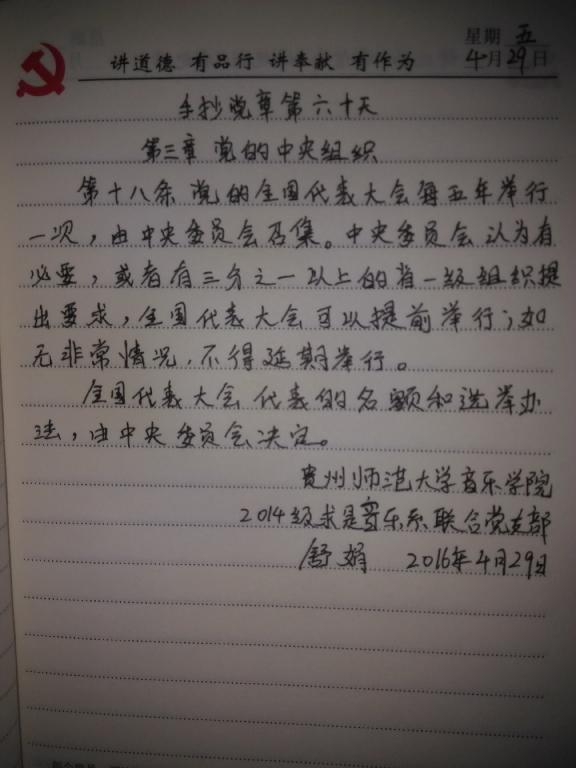 星期 五
讲道德 有品行 讲奉献 有作为 4月29日
手抄党章第六十天
第三章 党的中央组织
第十八条 党的全国代表大会每五年举行
一次，由中央委员会召集。中央委员会认为有
必要，或者有三分之一以上的省一级组织提
出要求，全国代表大会可以提前举行；如
无非常情况，不得延期举行。
全国代表大会代表的名额和选举办
法，由中央委员会决定。
贵州师范大学音乐学院
2014级求是音乐系联合党支部
舒娟 2016年4月29日